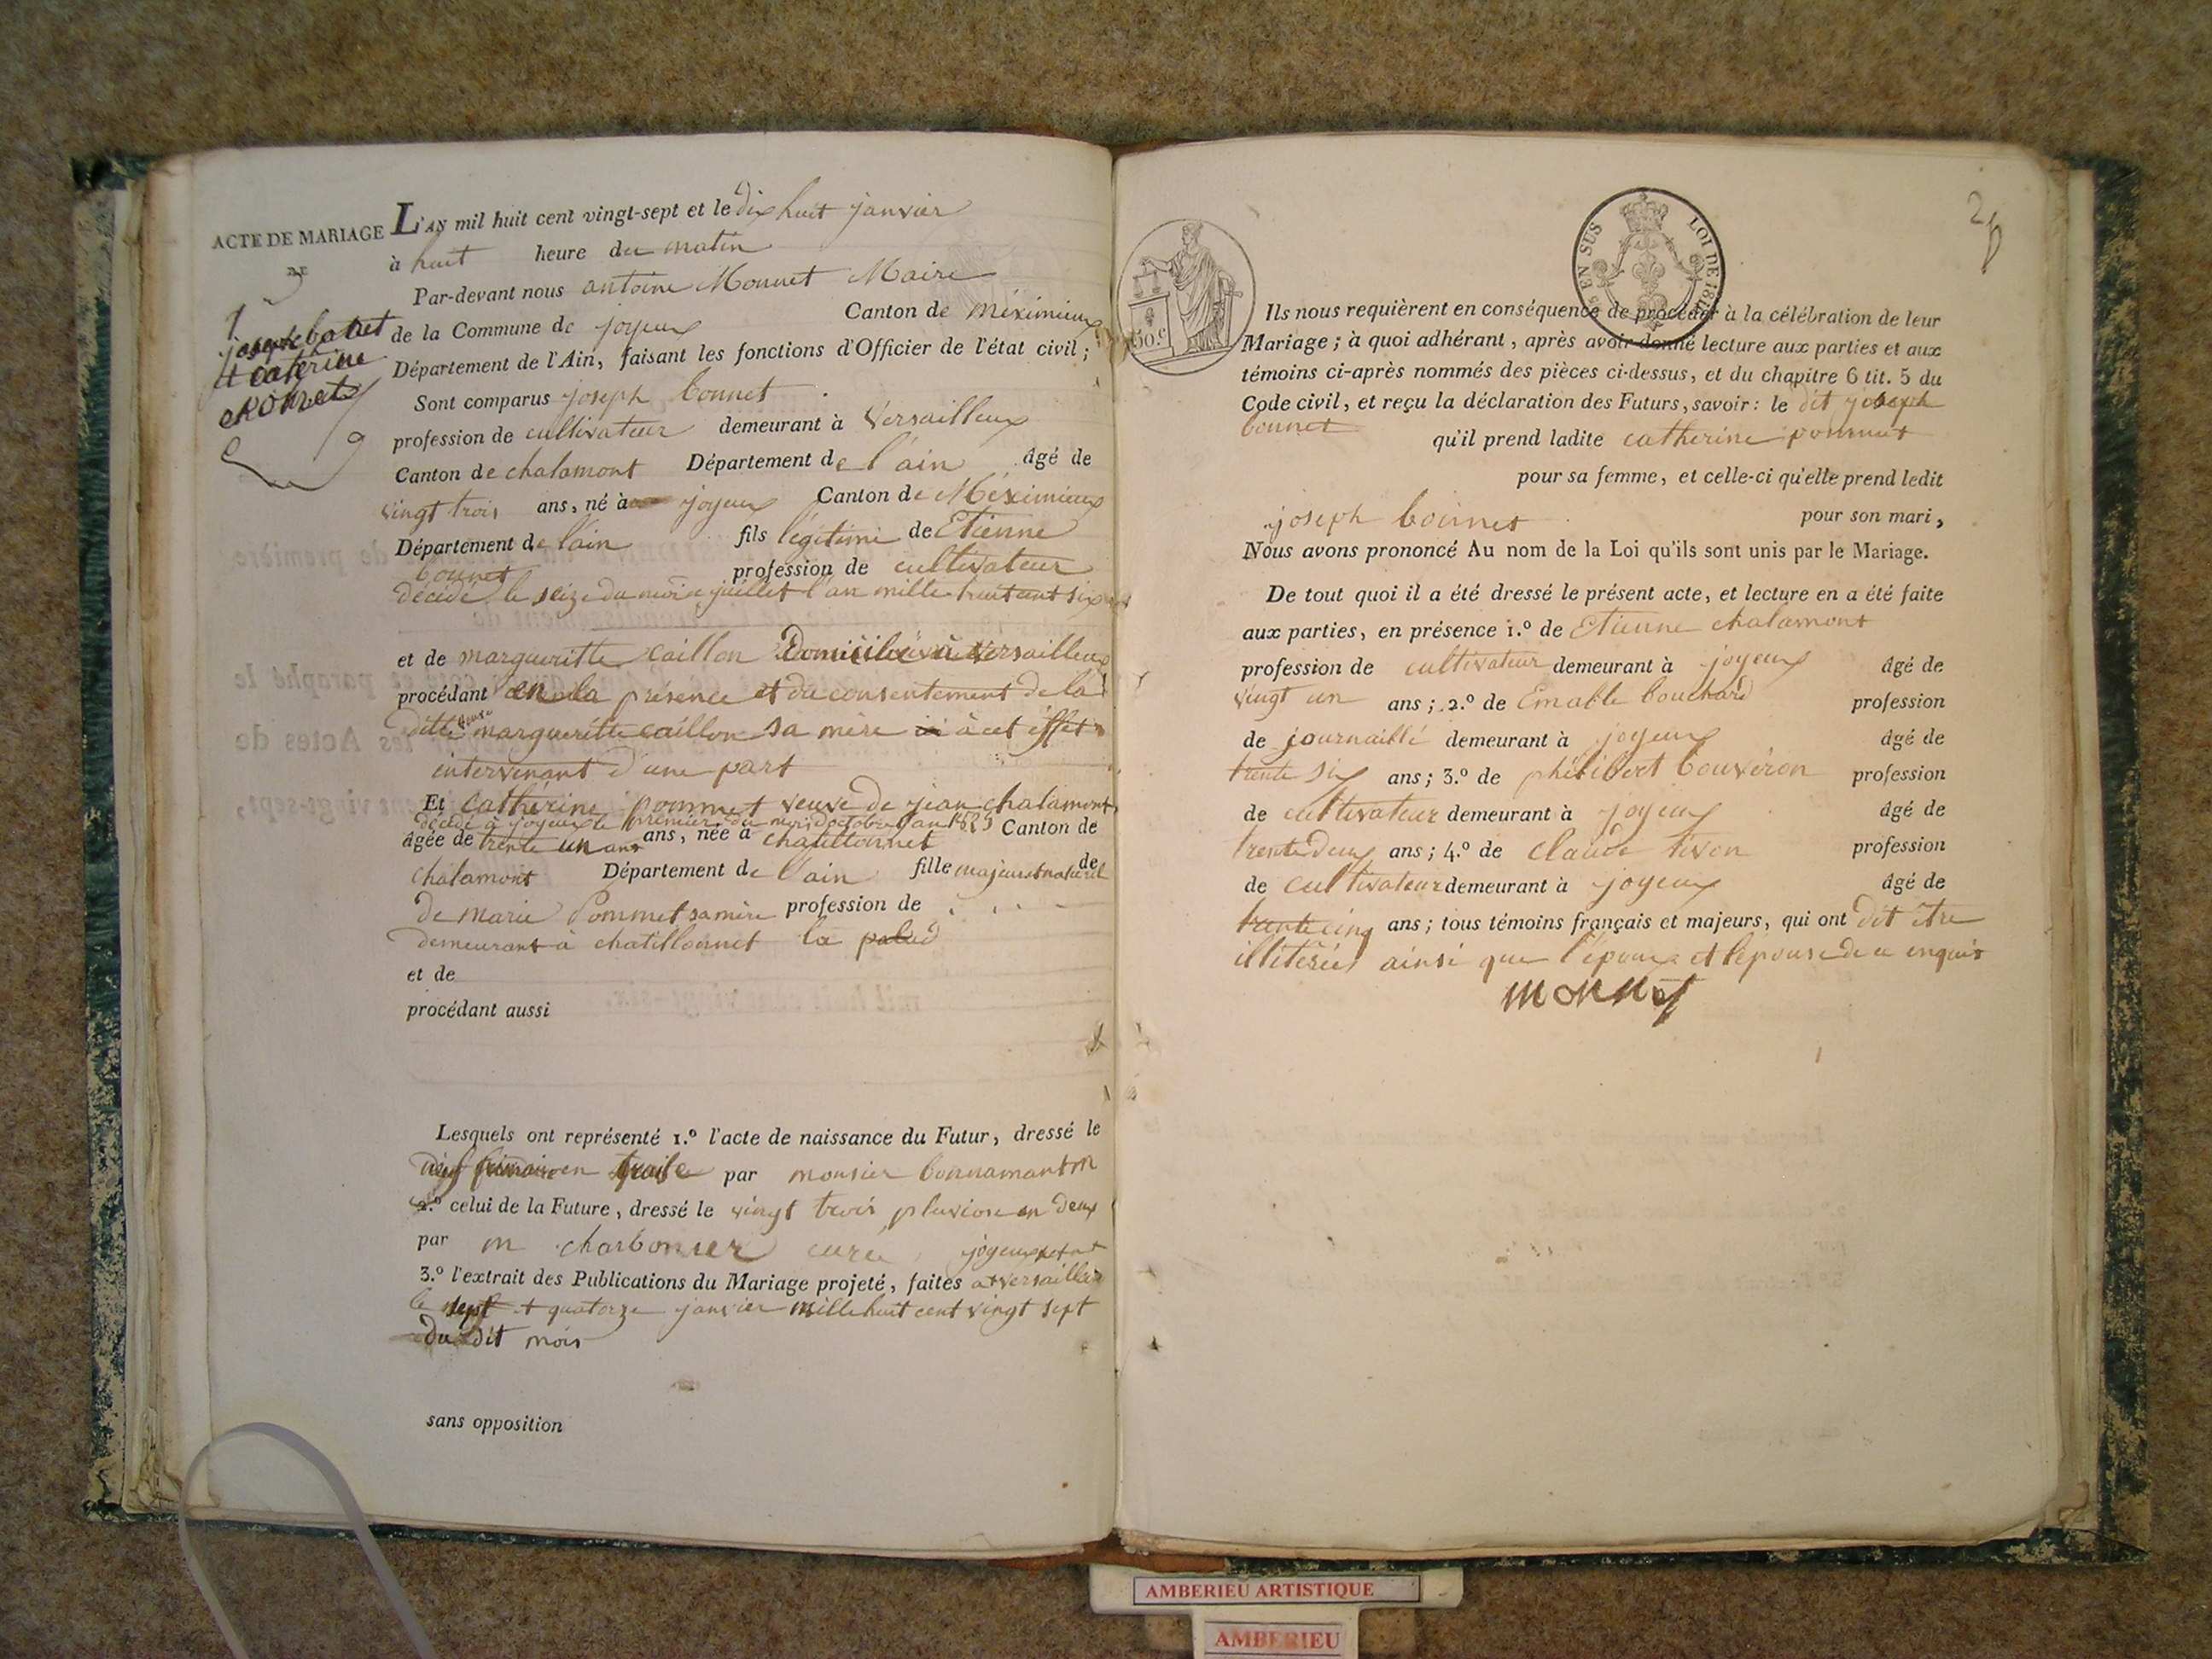 ACTE DE MARIAGE
DE
joseph bonet
et caterine
L'AN mil huit cent vingt-sept et le dix huit janvier
à huit heure du matin
Par-devant nous antoine Monnet Maire
de la Commune de joyeux Canton de méximieux
Département de l'Ain, faisant les fonctions d'Officier de l'état civil;
Sont comparus joseph bonnet
profession de cultivateur demeurant à Versailleux
Canton de chalamont Département de l'ain âgé de
vingt trois ans, né à joyeux Canton de Méximieux
Département de l'ain fils légitime de Etienne
bonnet profession de cultivateur
décédé le seize du mois juillet l'an mille huit cent six
et de margueritte caillon Domicilié à versailleux
procédant en la présence et du consentement de la
ditte margueritte caillon sa mère à cet effet
intervenant d'une part
Et cathérine pommet veuve de jean chalamont
décédé à joyeux le premier du mois d'octobre l'an 1825
âgée de trente un ans ans, née à chatillonnet Canton de
chalamont Département de l'ain fille majeur et naturel de
de marie Pommet sa mère profession de
demeurant à chatillonnet la palud
et de
procédant aussi
Lesquels ont représenté 1.º l'acte de naissance du Futur, dressé le
par monsier bonnamant
2.º celui de la Future, dressé le vingt trois pluviose an deux
par m charbonier curé joyeux
3.º l'extrait des Publications du Mariage projeté, faites a versailleux
le sept et quatorze janvier mille huit cent vingt sept
du dit mois
sans opposition
50 c.
EN SUS LOI DE 181
Ils nous requièrent en conséquence de procéder à la célébration de leur
Mariage; à quoi adhérant, après avoir donné lecture aux parties et aux
témoins ci-après nommés des pièces ci-dessus, et du chapitre 6 tit. 5 du
Code civil, et reçu la déclaration des Futurs, savoir: le dit joseph
bonnet qu'il prend ladite catherine pommet
pour sa femme, et celle-ci qu'elle prend ledit
joseph bonnet pour son mari,
Nous avons prononcé Au nom de la Loi qu'ils sont unis par le Mariage.
De tout quoi il a été dressé le présent acte, et lecture en a été faite
aux parties, en présence 1.º de Etienne chalamont
profession de cultivateur demeurant à joyeux âgé de
vingt un ans; 2.º de Emable bouchard profession
de journallié demeurant à joyeux âgé de
trente six ans; 3.º de philibert bouveron profession
de cultivateur demeurant à joyeux âgé de
trente deux ans; 4.º de claude tivon profession
de cultivateur demeurant à joyeux âgé de
trente cinq ans; tous témoins français et majeurs, qui ont dit être
illiterés ainsi que l'époux et l'epouse de ce enquis
monnet
AMBERIEU ARTISTIQUE
AMBERIEU